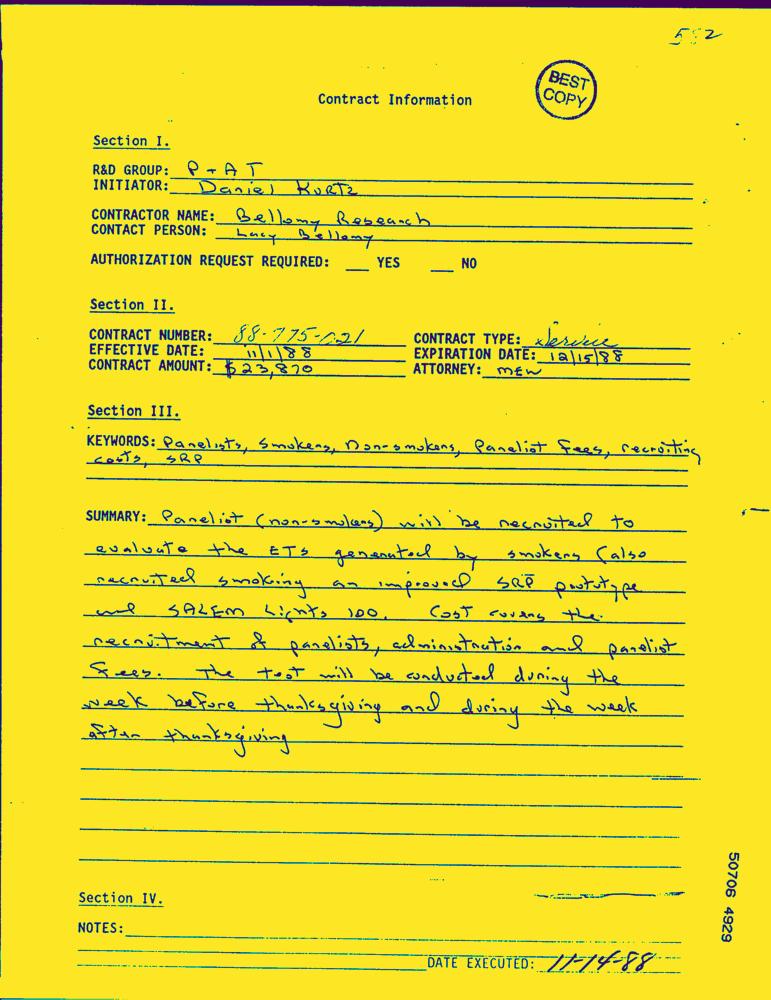 BEST
COPY
Contract Information
Section I.
R&D GROUP: P + A T
INITIATOR: Daniel Kurtz
CONTRACTOR NAME: Bellomy Research
CONTACT PERSON: Lacy Bellomy
AUTHORIZATION REQUEST REQUIRED: ___ YES ___ NO
Section II.
CONTRACT NUMBER: 88-775-021 CONTRACT TYPE: Service
EFFECTIVE DATE: 11/1/88 EXPIRATION DATE: 12/15/88
CONTRACT AMOUNT: $23,870 ATTORNEY: MEW
Section III.
KEYWORDS: Panelists, Smokers, Non-smokers, Panelist Fees, recruiting
costs, SRP
SUMMARY: Panelist (non-smokers) will be recruited to
evaluate the ETS generated by smokers (also
recruited smoking an improved SRP prototype
and SALEM Lights 100. Cost covers the
recruitment of panelists, administration and panelist
Fees. The test will be conducted during the
week before thanksgiving and during the week
after thanksgiving
Section IV.
NOTES:
DATE EXECUTED: 11-14-88
50706 4929